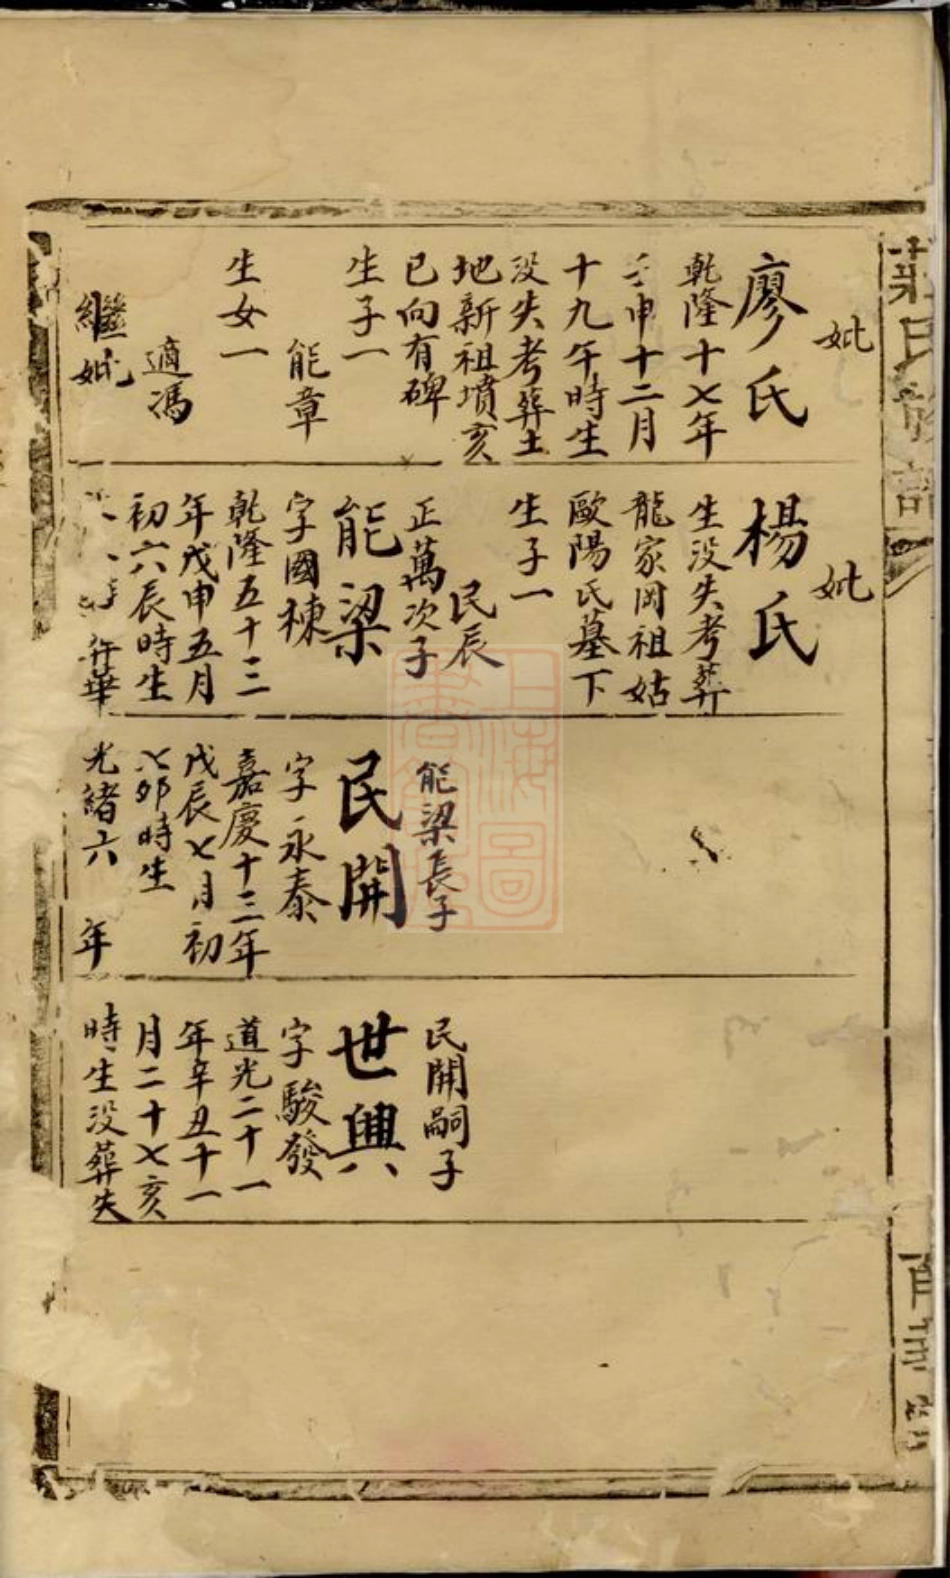 莊氏族譜
妣
廖氏
乾隆十七年
壬申十二月
十九午時生
没失考葬土
地新祖墳亥
巳向有碑
生子一
能章
生女一
適馮
繼妣
妣
楊氏
生没失考葬
龍家岡祖姑
歐陽氏墓下
生子一
民辰
正萬次子
能梁
字國棟
乾隆五十三
年戊申五月
初六辰時生
華
能梁長子
民開
字永泰
嘉慶十三年
戊辰七月初
八卯時生
光緒六 年
民開嗣子
世興
字駿發
道光二十一
年辛丑十一
月二十七亥
時生没葬失
上海圖書館藏